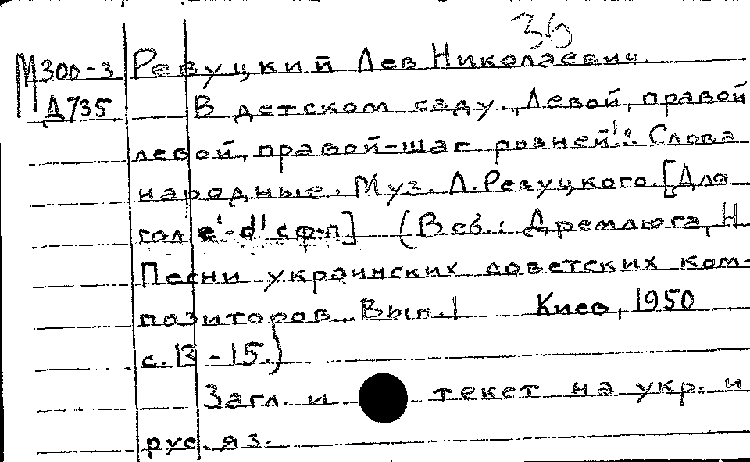 36
М300-3 Ревуцкий Лев Николаевич.
Д735 В детском саду. "Левой, правой
левой, правой-шаг ровней!": Слова
народные. Муз. Л. Ревуцкого. [Для
гол e'-d' с ф-п] (В сб.: Дремлюга, Н
Песни украинских советских ком-
позиторов. Вып. 1 Киев, 1950
с. 13-15.)
Загл. и текст на укр. и
рус. яз.